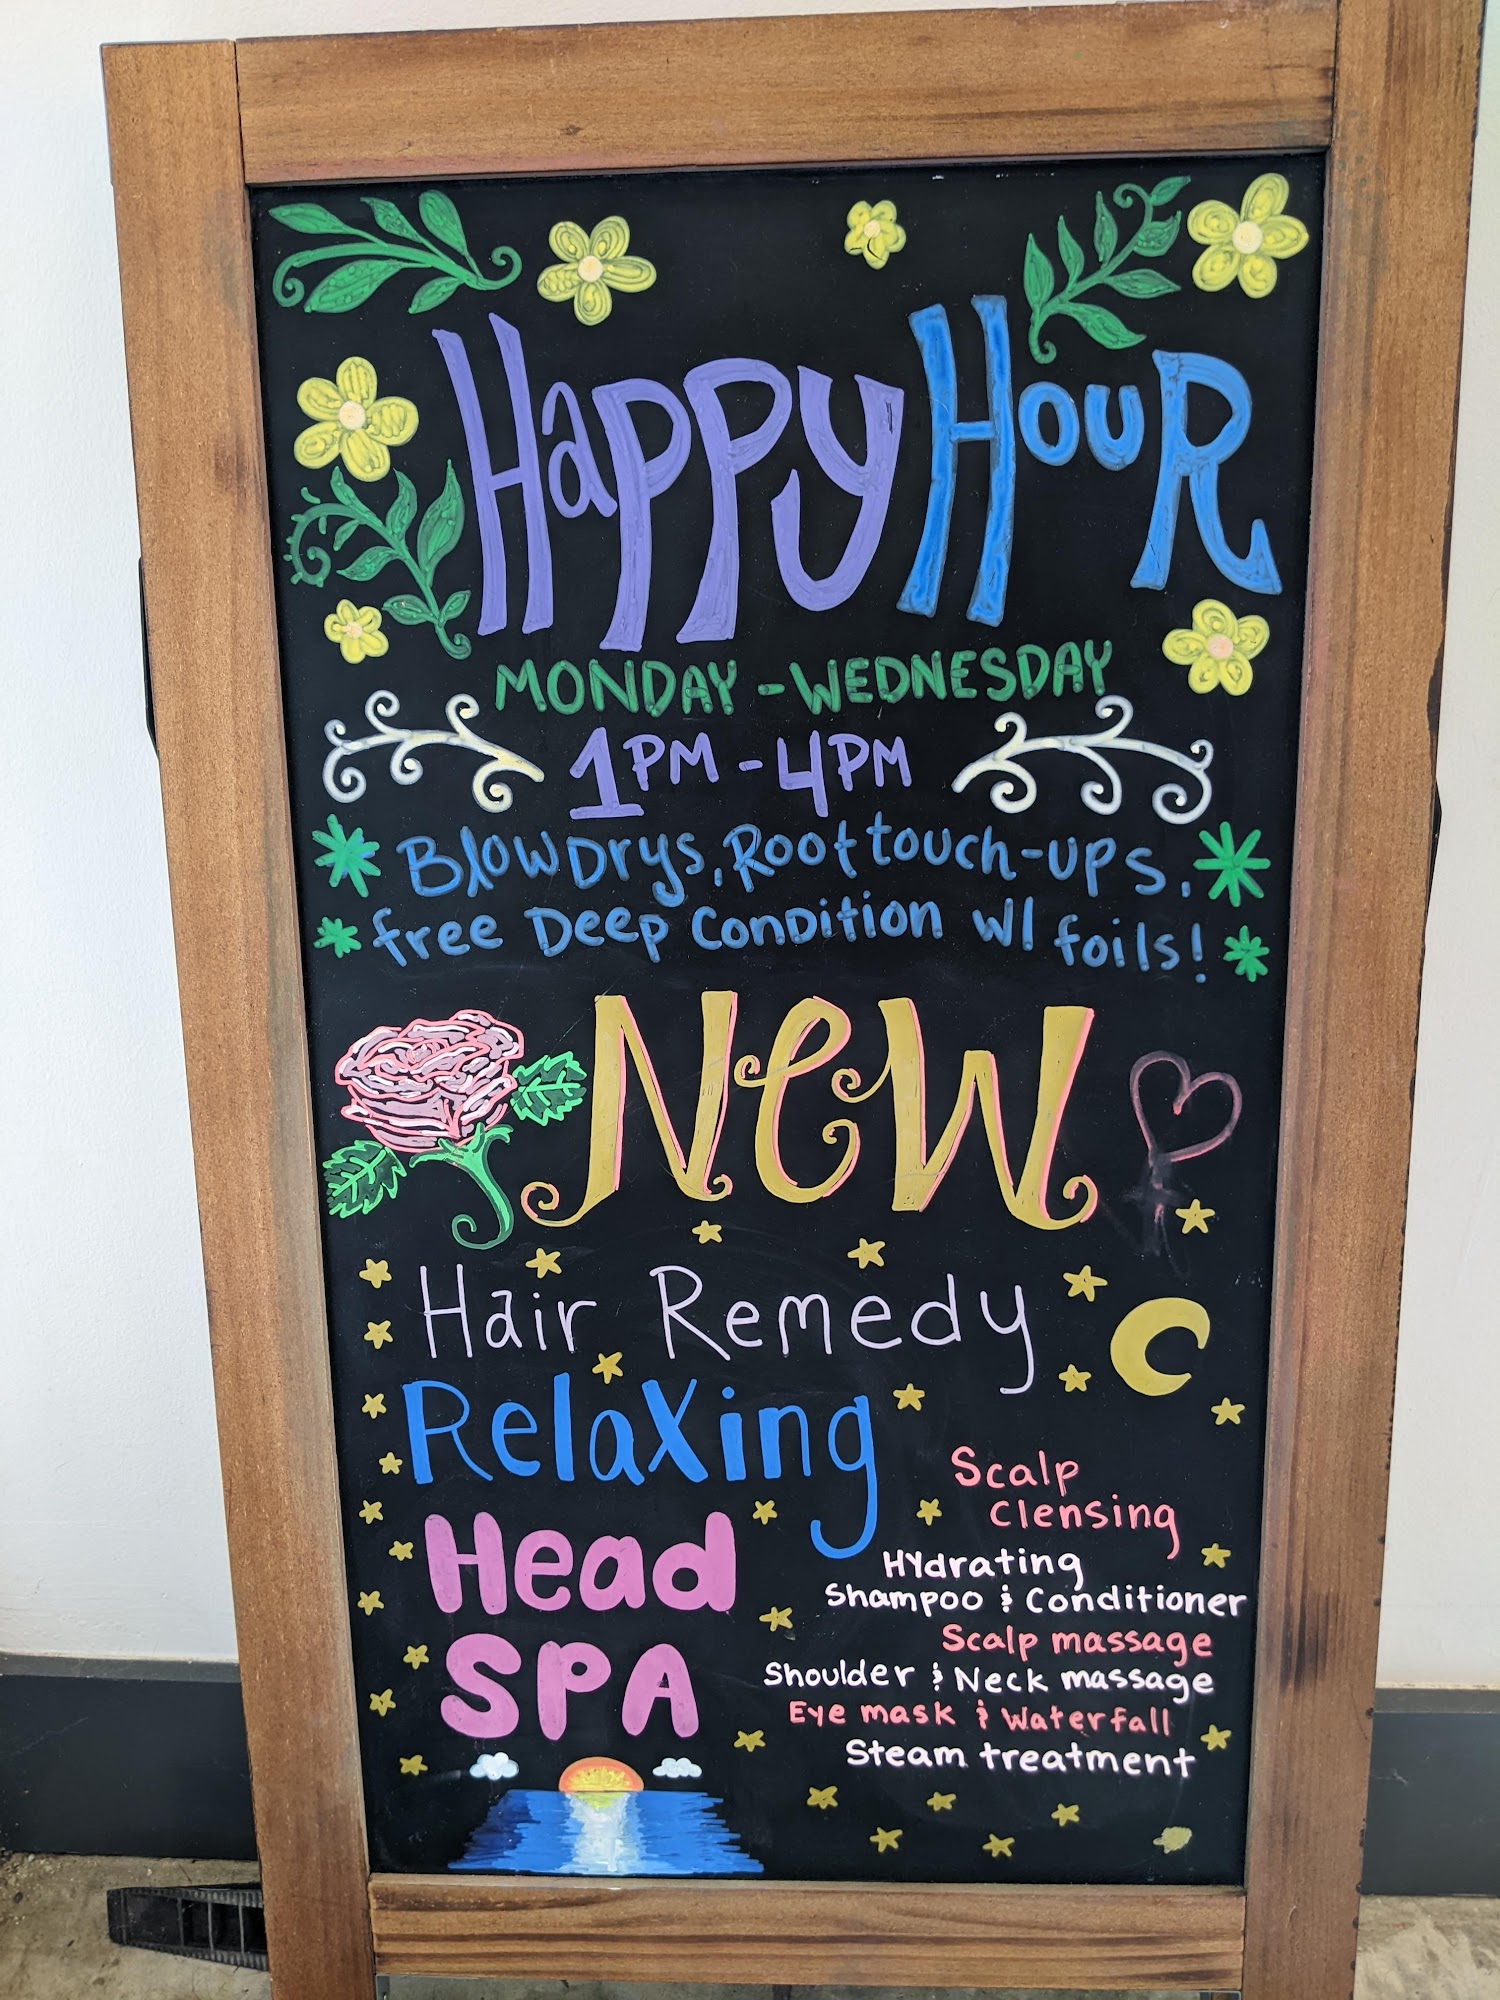 Happy Hour
MONDAY - WEDNESDAY
1PM - 4PM
BlowDrys, Root touch-ups,
free Deep Condition w/ foils!
New
Hair Remedy
Relaxing
Head
SPA
Scalp
Clensing
Hydrating
Shampoo & Conditioner
Scalp massage
Shoulder & Neck massage
Eye mask & Waterfall
Steam treatment